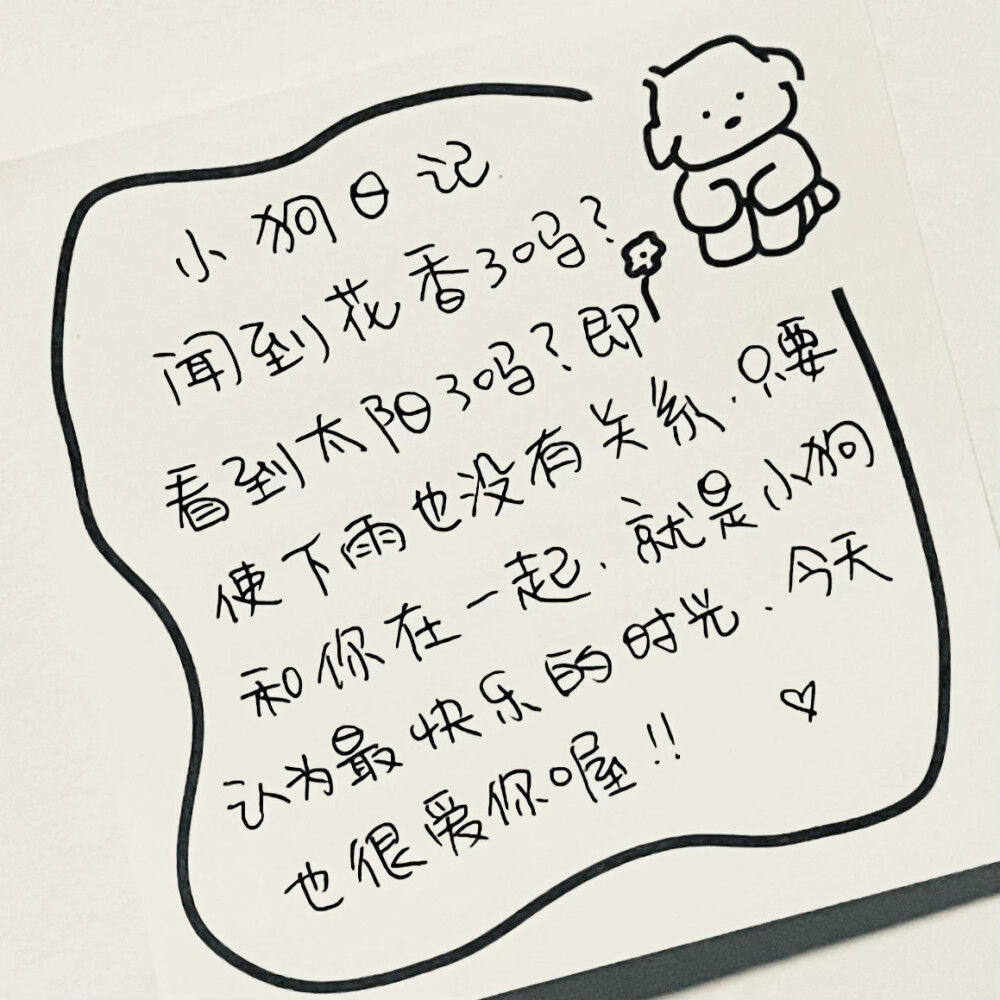 小狗日记
闻到花香了吗？
看到太阳了吗？即
使下雨也没有关系.只要
和你在一起.就是小狗
认为最快乐的时光.今天
也很爱你喔!!